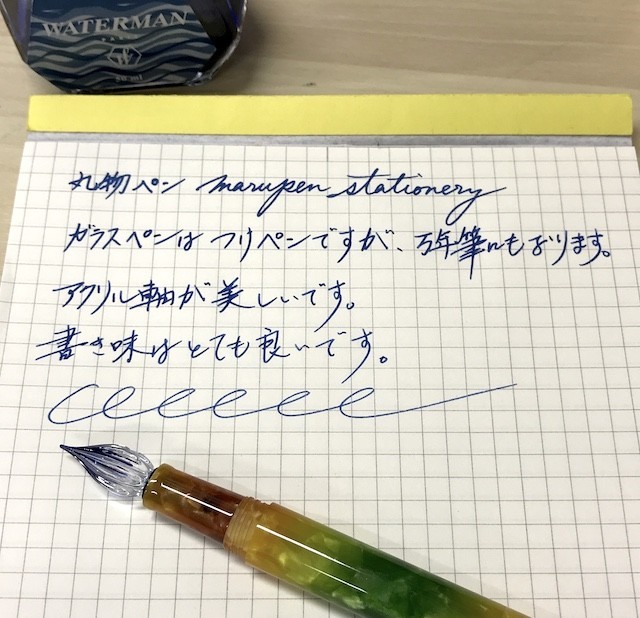 WATERMAN
PARIS
50 ml
丸物ペン marupen stationery
ガラスペンは つけペンですが、万年筆にもなります。
アクリル軸が美しいです。
書き味はとても良いです。